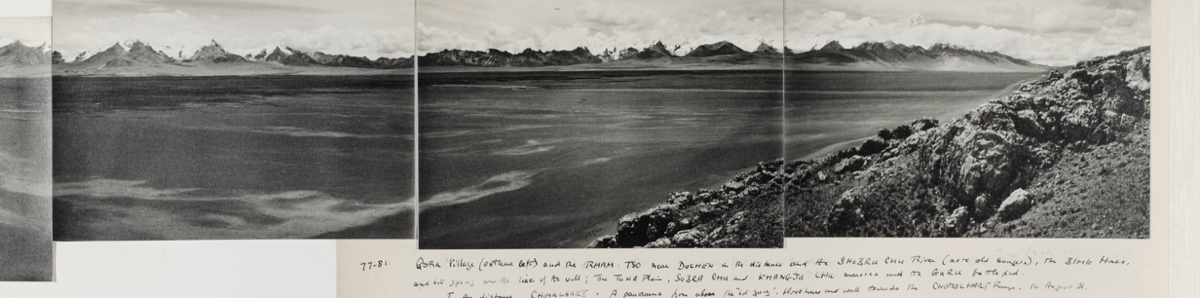 77-81. GURU Village (extreme left) and the RHAM TSO near DOCHEN in the distance and the SHOBRU CHU River (note old sangars), the Block House,
and hot spring and the line of the wall; The TUNA Plain, SUBRA CHU and KHANGBU CHU marshes and the GURU battlefield.
In the distance CHOMOLHARI. A panorama from above the "hot spring", blockhouse and wall towards the CHOMOLHARI Range.